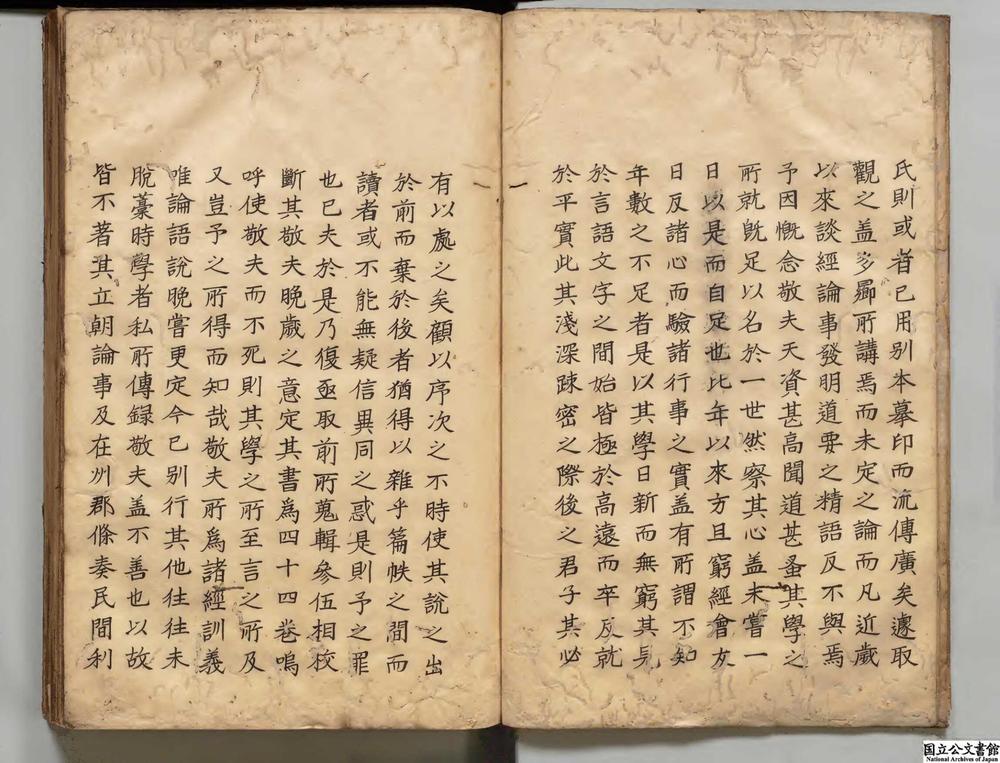 氏則或者已用別本摹印而流傳廣矣遽取
觀之盖多曏所講焉而未定之論而凡近歲
以來談經論事發明道要之精語反不與焉
予因慨念敬夫天資甚高聞道甚蚤其學之
所就旣足以名於一世然察其心盖未嘗一
日以是而自足也比年以來方且窮經會友
日反諸心而驗諸行事之實盖有所謂不知
年數之不足者是以其學日新而無窮其見
於言語文字之間始皆極於高遠而卒反就
於平實此其淺深踈密之際後之君子其必
一
一
有以處之矣顧以序次之不時使其說之出
於前而棄於後者猶得以雜乎篇帙之間而
讀者或不能無疑信異同之惑是則予之罪
也已夫於是乃復亟取前所蒐輯參伍相校
斷其敬夫晚歲之意定其書爲四十四卷嗚
呼使敬夫而不死則其學之所至言之所及
又豈予之所得而知哉敬夫所爲諸經訓義
唯論語說晚嘗更定今已別行其他往往未
脫藁時學者私所傳錄敬夫盖不善也以故
皆不著其立朝論事及在州郡條奏民間利
国立公文書館
National Archives of Japan